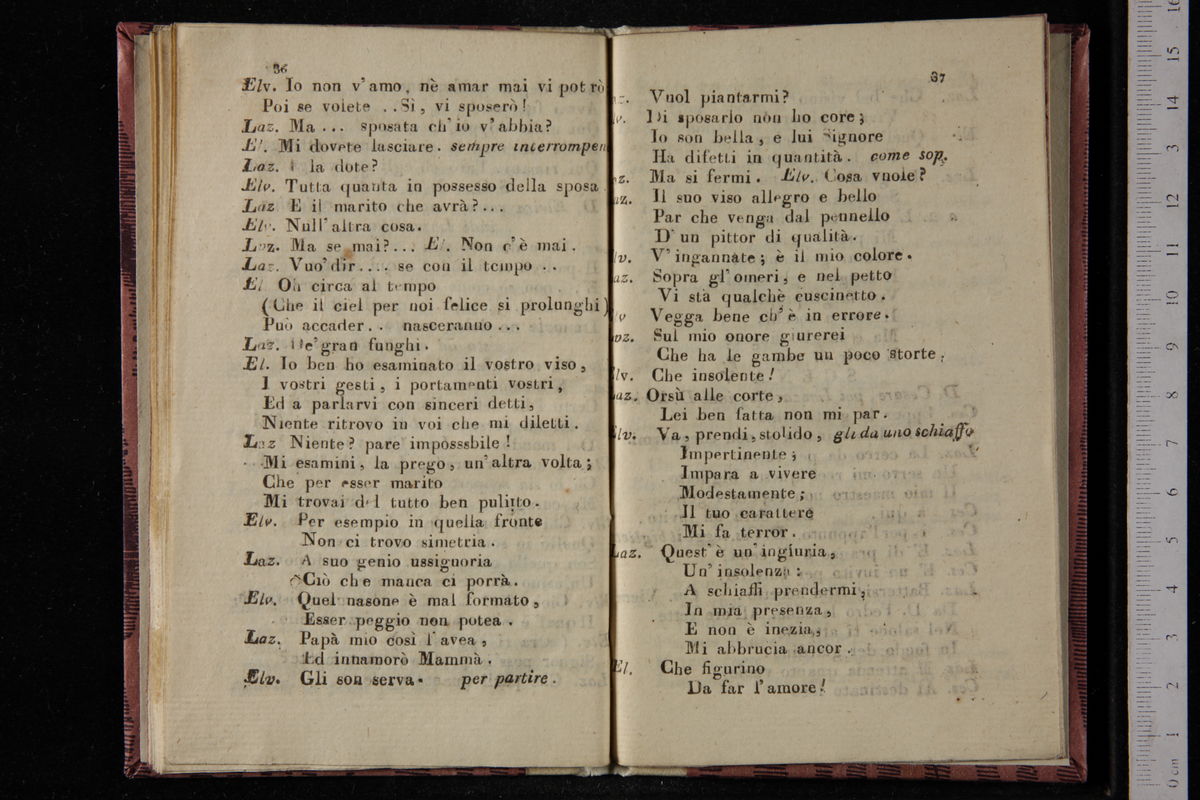 36
Elv. Io non v'amo, nè amar mai vi potrò
Poi se volete . . Sì, vi sposerò!
Laz. Ma . . . sposata ch'io v'abbia?
El. Mi dovete lasciare. sempre interrompen
Laz. la dote?
Elv. Tutta quanta in possesso della sposa
Laz E il marito che avrà? . . .
Elv. Null'altra cosa.
Laz. Ma se mai? . . . El. Non c'è mai.
Laz. Vuo'dir . . . . se con il tempo . .
El Oh circa al tempo
(Che il ciel per noi felice si prolunghi)
Può accader . . nasceranno . . .
Laz. De'gran funghi.
El. Io ben ho esaminato il vostro viso,
I vostri gesti, i portamenti vostri,
Ed a parlarvi con sinceri detti,
Niente ritrovo in voi che mi diletti.
Laz Niente? pare impòsssbile!
Mi esamini, la prego, un'altra volta;
Che per esser marito
Mi trovai del tutto ben pulito.
Elv. Per esempio in quella fronte
Non ci trovo simetria.
Laz. A suo genio ussignoria
Ciò che manca ci porrà.
Elv. Quel nasone è mal formato,
Esser peggio non potea.
Laz. Papà mio così l'avea,
Ed innamorò Mammà.
Elv. Gli son serva. per partire.
37
az. Vuol piantarmi?
lv. Di sposarlo non ho core;
Io son bella, e lui Signore
Ha difetti in quantità. come sop.
az. Ma si fermi. Elv. Cosa vuole?
az. Il suo viso allegro e bello
Par che venga dal pennello
D'un pittor di qualità.
lv. V'ingannate; è il mio colore.
az. Sopra gl'omeri, e nel petto
Vi sta qualchè cuscinetto.
v Vegga bene ch'è in errore.
az. Sul mio onore giurerei
Che ha le gambe un poco storte,
lv. Che insolente!
Laz. Orsù alle corte,
Lei ben fatta non mi par.
Elv. Va, prendi, stolido, gli da uno schiaffo
Impertinente;
Impara a vivere
Modestamente;
Il tuo carattere
Mi fa terror.
Laz. Quest'è un'ingiuria,
Un'insolenza:
A schiaffi prendermi,
In mia presenza,
E non è inezia,
Mi abbrucia ancor.
El. Che figurino
Da far l'amore!